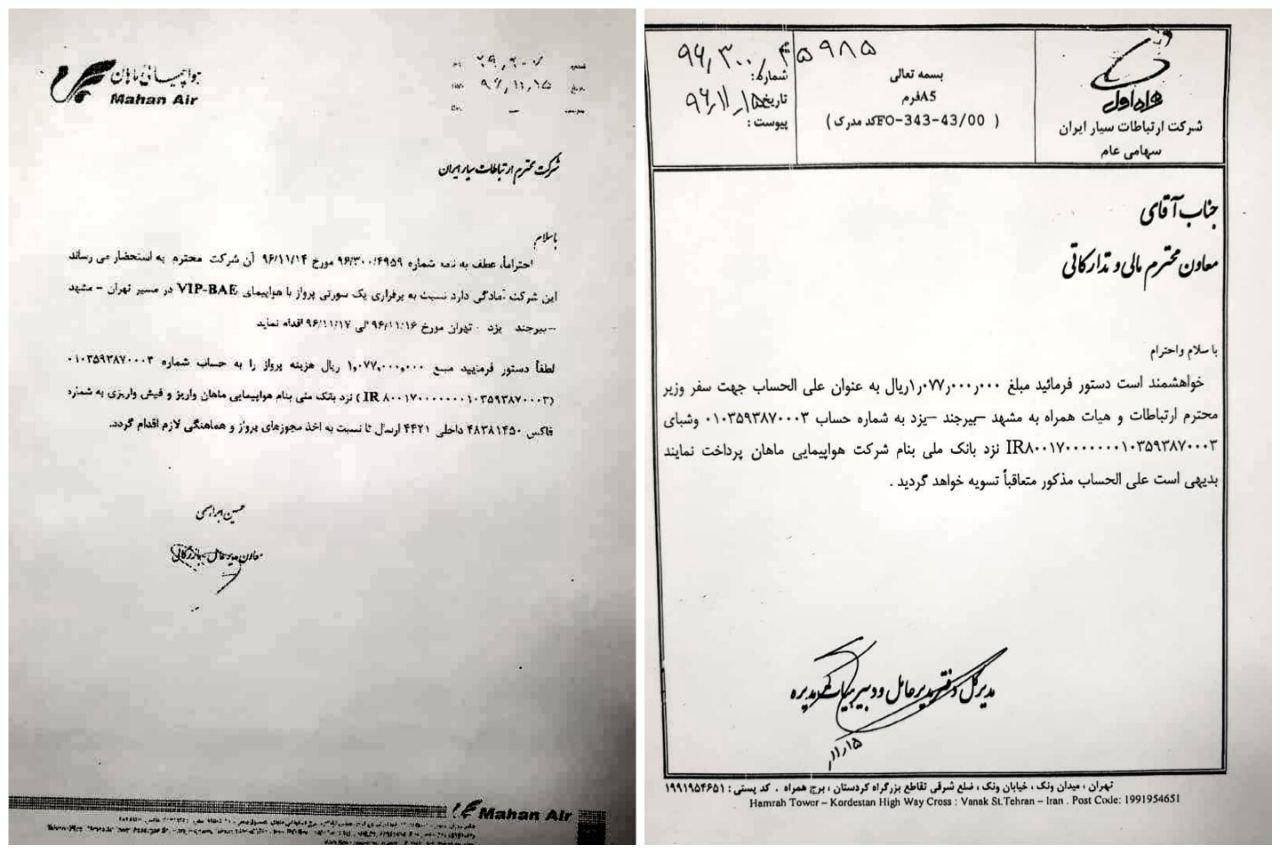 هواپیمائی ماهان
Mahan Air
۹۶,۱۱,۱۵
شرکت محترم ارتباطات سیار ایران
باسلام
احتراماً، عطف به نامه شماره ۹۶/۳۰۰/۴۹۵۹ مورخ ۹۶/۱۱/۱۴ آن شرکت محترم به استحضار می رساند
این شرکت آمادگی دارد نسبت به برقراری یک سورتی پرواز با هواپیمای VIP-BAE در مسیر تهران – مشهد
–بیرجند یزد - تهران مورخ ۹۶/۱۱/۱۶ الی ۹۶/۱۱/۱۷ اقدام نماید
لطفاً دستور فرمایید مبلغ ۱,۰۷۷,۰۰۰,۰۰۰ ریال هزینه پرواز را به حساب شماره ۰۱۰۳۵۹۳۸۷۰۰۰۳
(IR ۸۰۰۱۷۰۰۰۰۰۰۰۱۰۳۵۹۳۸۷۰۰۰۳) نزد بانک ملی بنام هواپیمایی ماهان واریز و فیش واریزی به شماره
فاکس ۴۸۳۸۱۴۵۰ داخلی ۴۴۲۱ ارسال تا نسبت به اخذ مجوزهای پرواز و هماهنگی لازم اقدام گردد.
معاون مدیرعامل - بازرگانی
Mahan Air
همراه اول
شرکت ارتباطات سیار ایران
سهامی عام
بسمه تعالی
فرمA5
( کد مدرکFO-343-43/00 )
۹۶٫۳۰۰٫۴۵۹۸۵
شماره:
تاریخ: ۹۶٫۱۱٫۱۵
پیوست :
جناب آقای
معاون محترم مالی و تدارکاتی
با سلام واحترام
خواهشمند است دستور فرمائید مبلغ ۱٫۰۷۷٫۰۰۰٫۰۰۰ریال به عنوان علی الحساب جهت سفر وزیر
محترم ارتباطات و هیات همراه به مشهد –بیرجند –یزد به شماره حساب ۰۱۰۳۵۹۳۸۷۰۰۰۳ وشبای
IR۸۰۰۱۷۰۰۰۰۰۰۰۱۰۳۵۹۳۸۷۰۰۰۳ نزد بانک ملی بنام شرکت هواپیمایی ماهان پرداخت نمایند
بدیهی است علی الحساب مذکور متعاقباً تسویه خواهد گردید .
مدیرکل دفتر مدیرعامل و دبیر هیات مدیره
۱۱٫۱۵
تهران ، میدان ونک ، خیابان ونک ، ضلع شرقی تقاطع بزرگراه کردستان ، برج همراه . کد پستی : ۱۹۹۱۹۵۴۶۵۱
Hamrah Tower – Kordestan High Way Cross : Vanak St.Tehran – Iran . Post Code: 1991954651